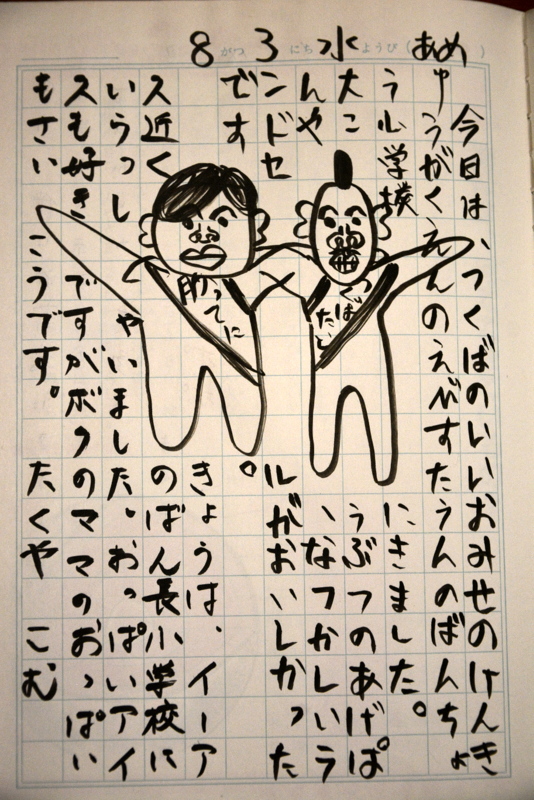 8がつ3にち水ようび(あめ)
今日は、つくばのいいおみせのけんき
ゆうがくえんのえがすたうんのばんちょ
う小学校にきました。
大こうぶつのあげぱ
んや、なつかしいラ
ンドセルがおいしかった
です。
きょうは、イーア
ス近くのばん長小学校に
いらっしゃいました。おっぱいアイ
スも好きですがボクのママのおっぱい
もさいこうです。たくや こむ
つくば
たいし
助ってに